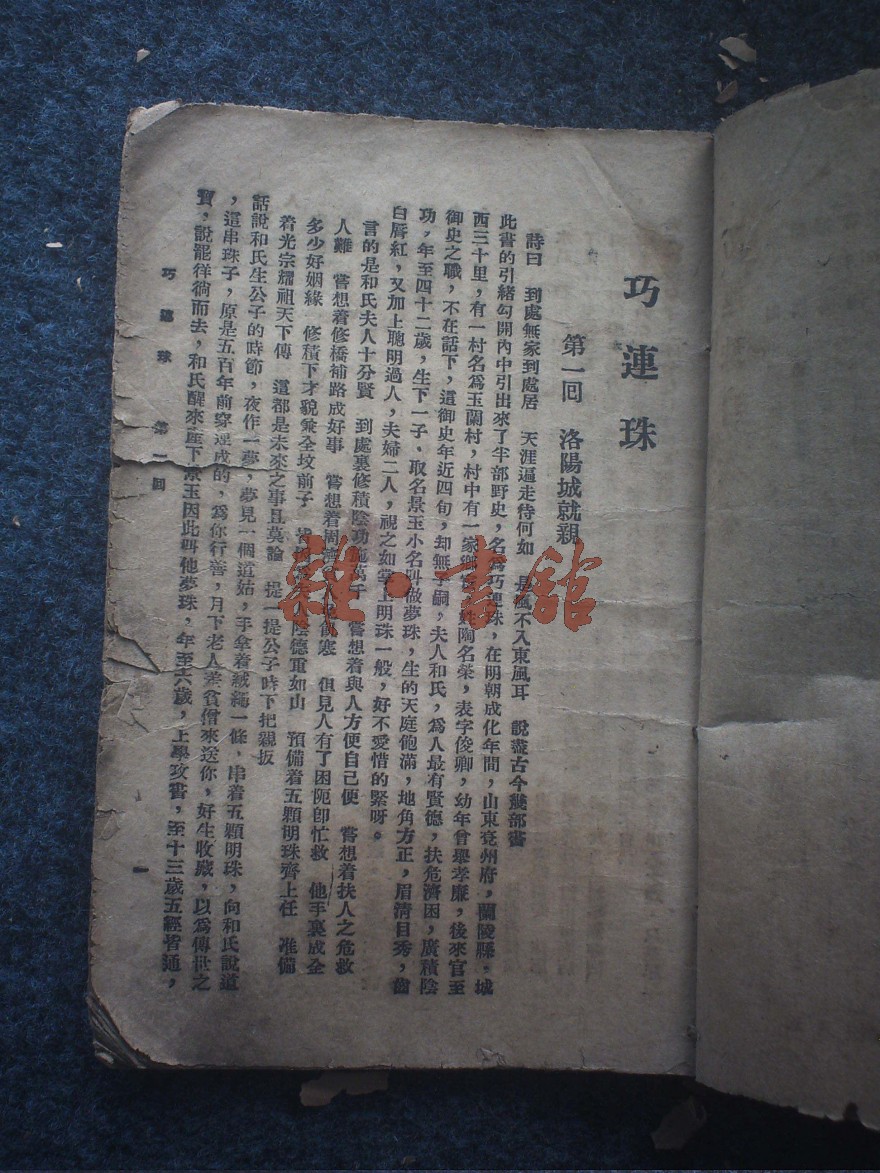 巧連珠
第一回　洛陽城就親
詩曰　到處無家到處居　天涯遍走待何如　長風不入東風耳　說盡古今幾部書
此書的引緒勾開內中引出來了半部野史，名為巧連珠，在明朝成化年間，山東兗州府，蘭陵縣，城
西三十里，有一村名為玉蘭村，村中有一家鄉宦，姓陶名榮，表字俊卿，幼年曾舉孝廉，後來官至
御史之職，不在話下，這御史年近四旬，却無子嗣，夫人和氏，為人最有賢德，扶危濟困，廣積陰
功，年至四十二歲，生下一子、取名景玉小名叫做夢珠，生的天庭飽滿，地角方正，眉清目秀，齒
白唇紅，又加上聰明過人，夫婦二人，視之如掌上明珠一般，好不愛惜的緊呀。
言的是和氏夫人十分賢　到處裏修積陰功施萬千　嘗想着與人方便自己便　嘗想着扶人之危救
人難　嘗想着修橋補路成好事　嘗想着周濟　寒　但見人有了困阨卽忙救　他手裏成全
多少好姻緣　修積下才貌兼全坟前子　陰德重如山　預備着五顆明珠齊上任　准備
着光宗耀祖天下傳　這都是未來之事且莫論　提一提公子時下把親扳
話說和氏生公子的時節，夜作一夢，夢見一個道姑，手拿着絨繩一條，串着五顆明珠，向和氏說道
，這串珠子，原是五百年前穿連成的，為你行善，月下老人差貧僧來送你，好生收藏，以為傳世之
寶，說罷徉徜而去，和氏醒來產下景玉因此叫他夢珠，年至六歲，上學攻書，至十三歲五經皆通，
巧連珠　第一回
一
雜·書館